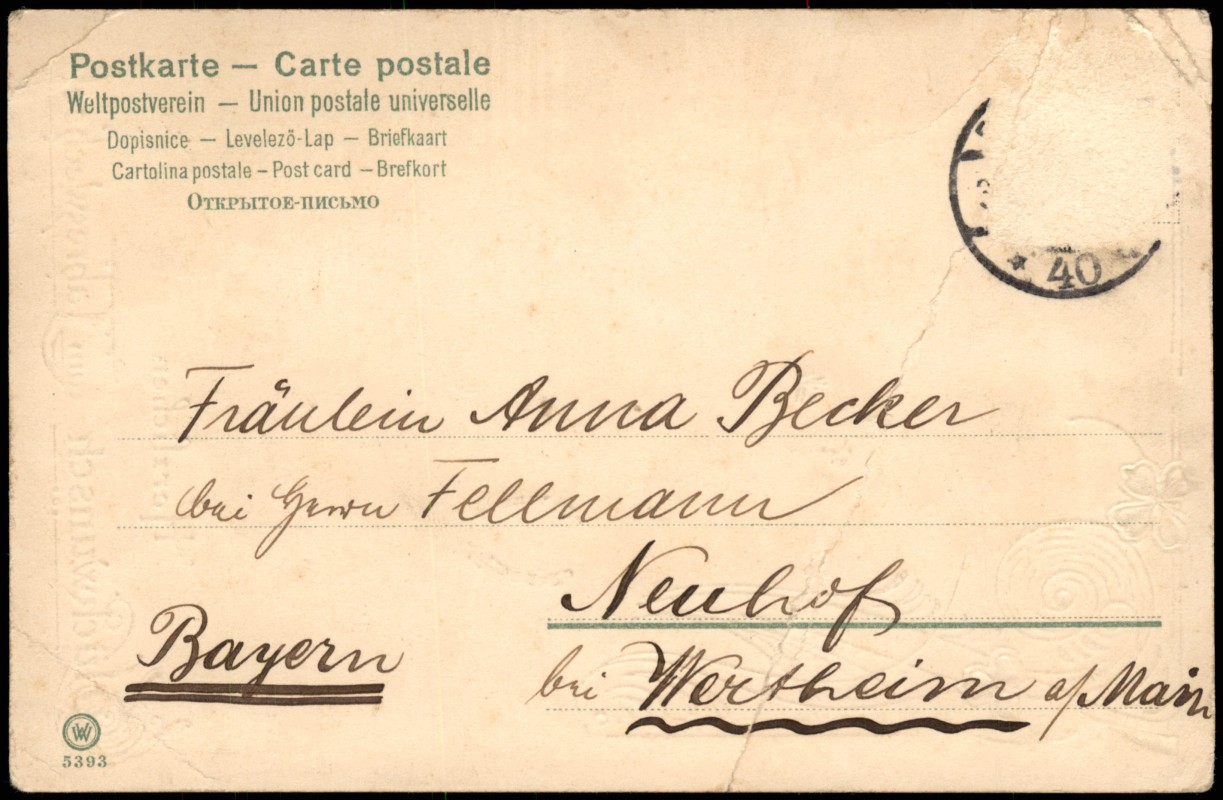 Postkarte — Carte postale
Weltpostverein — Union postale universelle
Dopisnice — Levelező-Lap — Briefkaart
Cartolina postale – Post card – Brefkort
Открытое-письмо
* 40
Fräulein Anna Becker
bei Herrn Fellmann
Neuhof
Bayern
bei Wertheim a/Main
W
5393